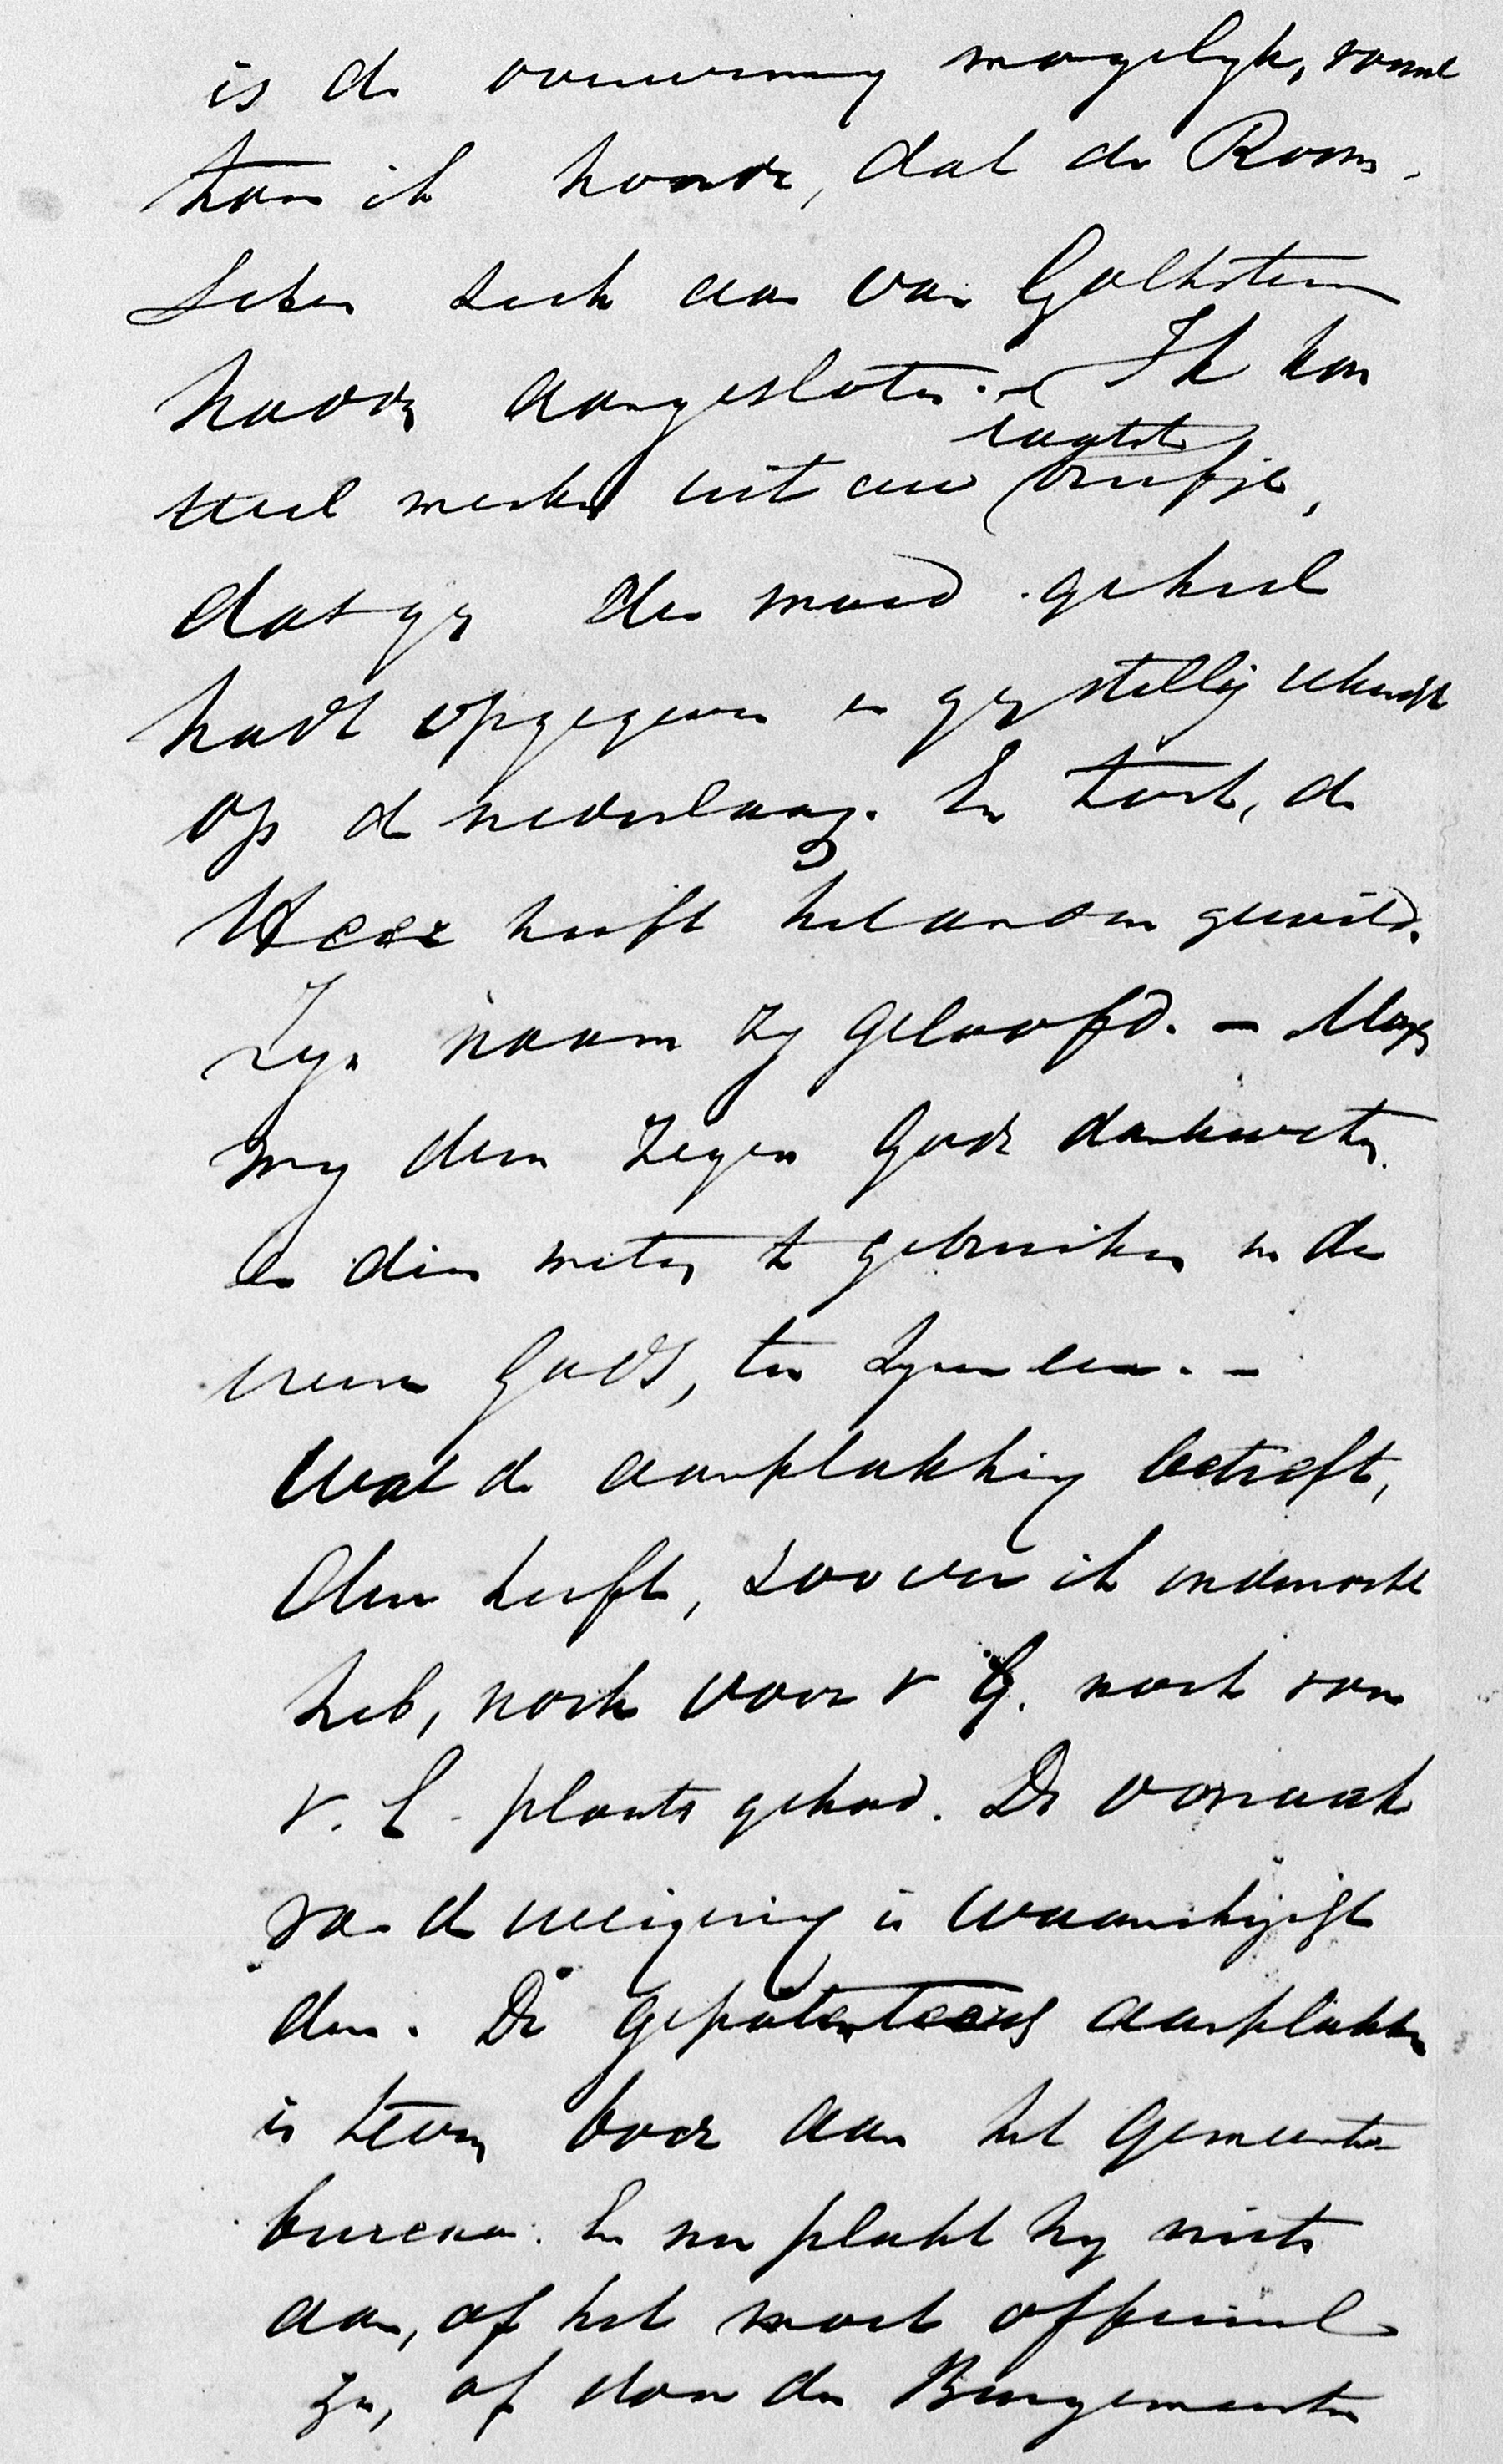 is de overwinning mogelyk, vooral
toen ik hoorde, dat de Room-
schen zich aan van Goltstein
hadden aangesloten. - Ik kon
heel merken uit uw laatste briefje,
dat gy den moed geheel
hadt opgegeven en gy stellig rekendet
op de nederlaag. En toch, de
Heer heeft het anders gewild.
Zyn naam zy geloofd. - Moge
wy dien zegen Gods dankweten
en dien weten te gebruiken in de
vreeze Gods, ter Zyner eer. -
Wat de aanplakking betreft,
deze heeft, zoover ik ondervonden
heb, noch voor v G. noch voor
v. L. plaats gehad. De oorzaak
van de weigering is waarschijnlijk
deze. De gepatenteerde aanplakker
is tevens bode aan het gemeente
bureau. En nu plakt hy niets
aan, of het moet officieel
zyn, of door den Burgemeester